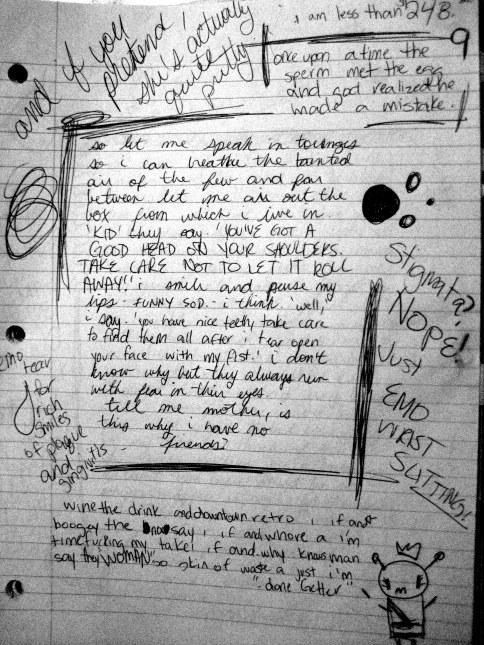 i am less than 248.
and if you
pretend,
she's actually
quite
pretty
once upon a time the
sperm met the egg
and god realized he
made a mistake.
so let me speak in tounges
so i can breathe the tainted
air of the few and far
between let me air out the
box from which i live in.
'KID' they say. 'YOU'VE GOT A
GOOD HEAD ON YOUR SHOULDERS.
TAKE CARE NOT TO LET IT ROLL
AWAY!' i smile and purse my
lips. FUNNY SOD. i think. 'well,'
i say. 'you have nice teeth, take care
to find them all after i tear open
your face with my fist.' i don't
know why but they always run
with fear in their eyes.
tell me mother, is
this why i have no
friends?
Stigmata?
NOPE!
JUST
EMO
WRIST
SLITTING!
emo tear
for
rich
smiles
of plaque
and
gingivitis.
wine the drink and downtown retro i if and
boogey the say i if and whore a i'm
time fucking my take i if and why knows man
say they WOMAN" so skin of waste a just i'm